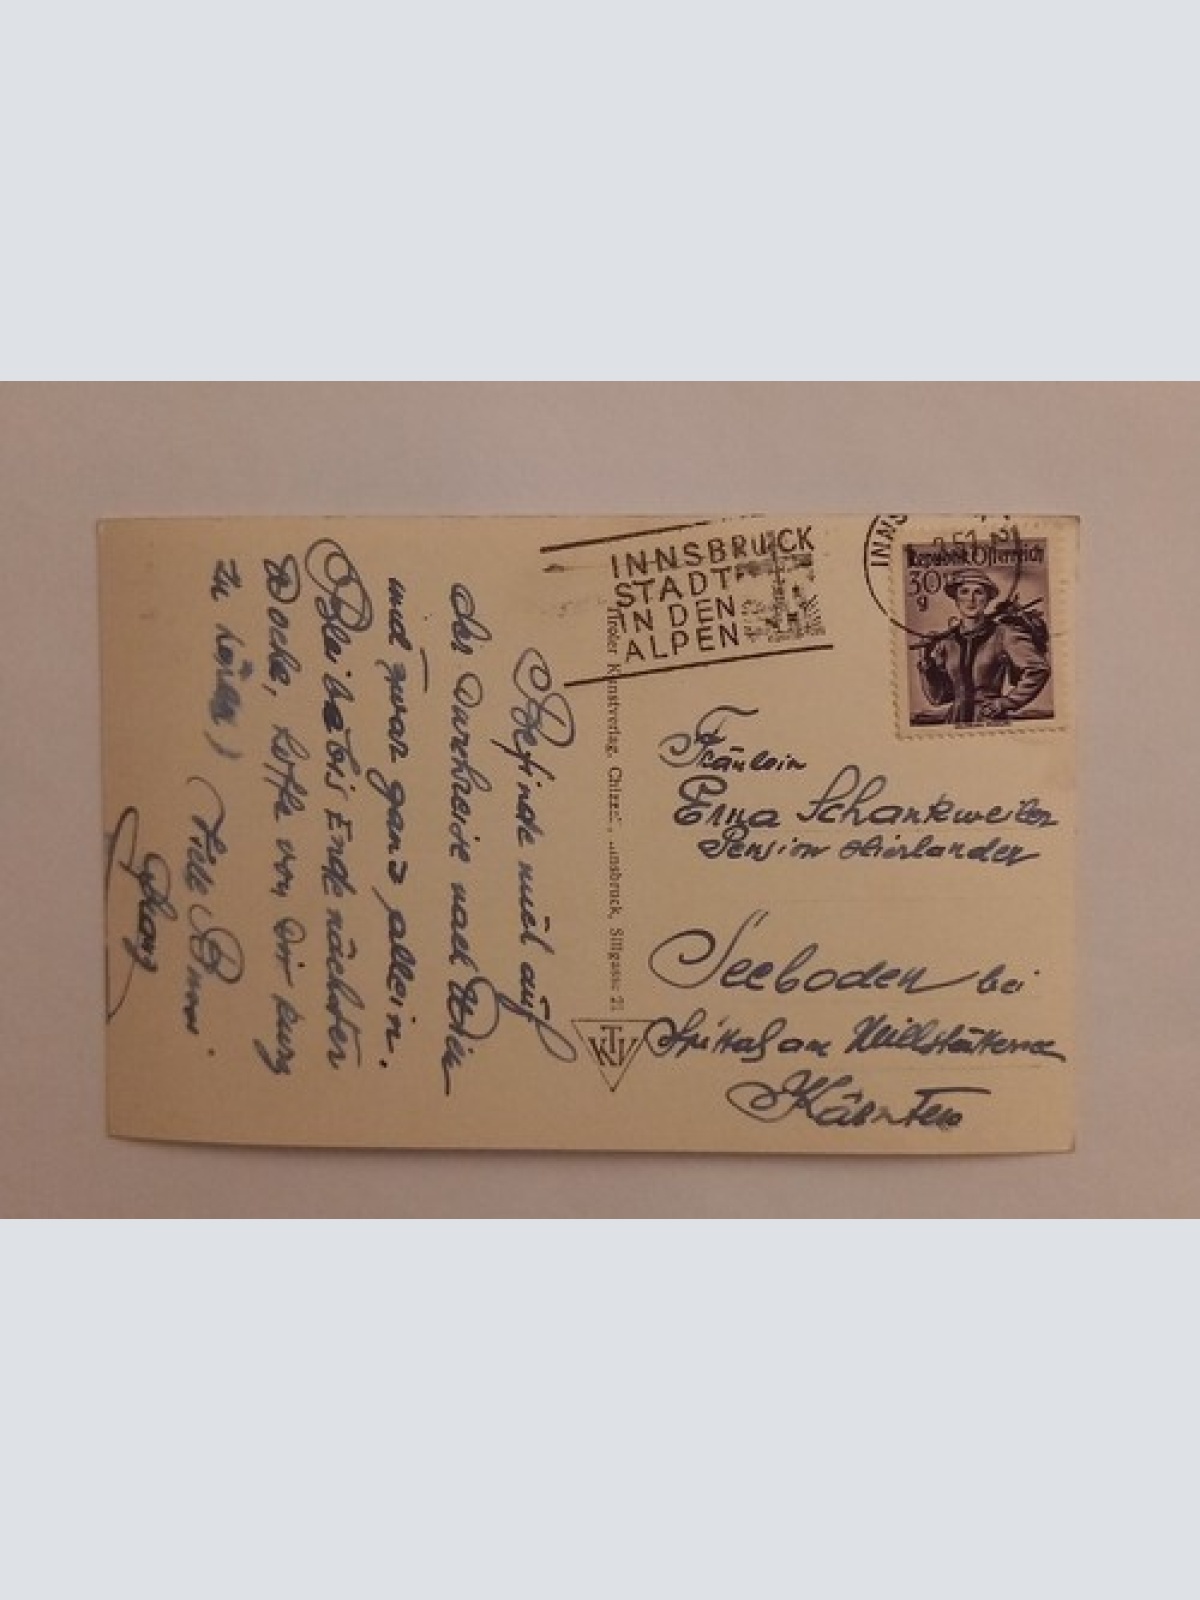 Befinde mich auf
der Durchreise nach Wien
und zwar ganz allein.
Bleibe bis Ende nächster
Woche, hoffe von Dir kurz
zu hören! Viele
INNSBRUCK
STADT
IN DEN
ALPEN
INNS
Republik Österreich
30
g
Tiroler Kunstverlag, Chizzali, Innsbruck, Sillgasse 21
KTV
Fräulein
Erna Schankweiler
Pension
Seeboden bei
Spittal am Millstättersee
Kärnten